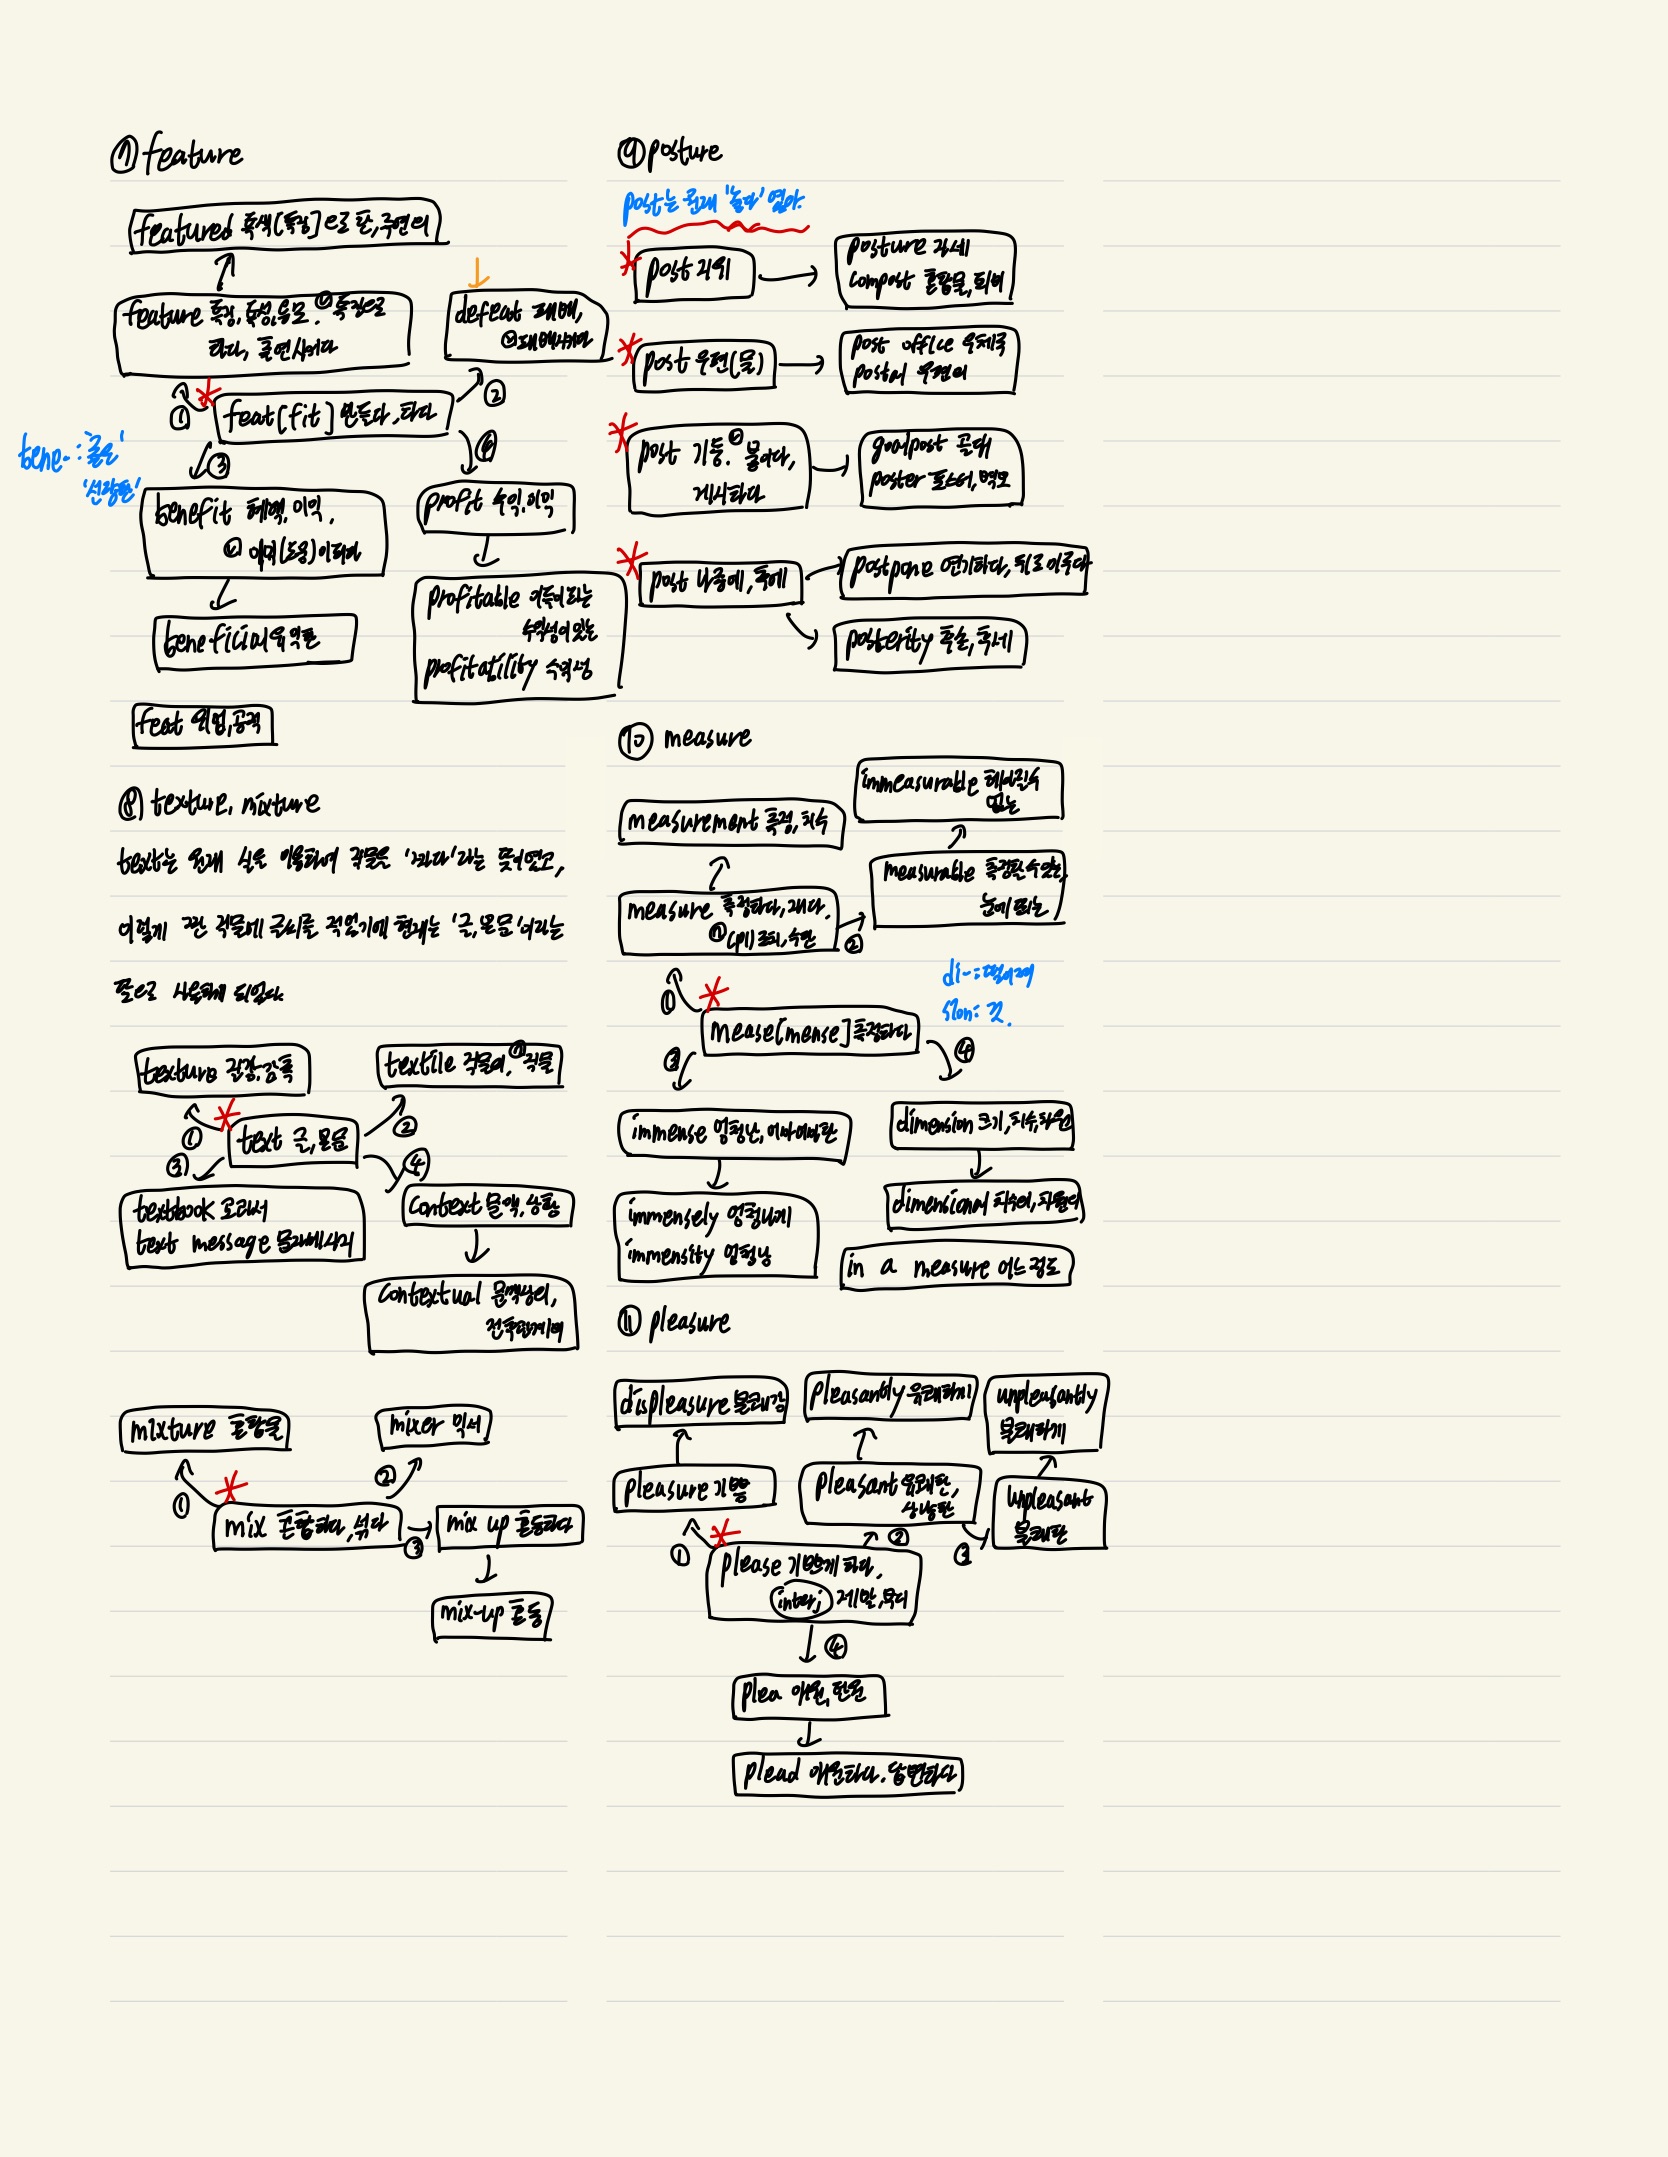 ⑦ feature
featured 특색[특징]으로 한, 주연의
feature 특징, 특성, 용모. ⓥ 특징으로
하다, 출연시키다
defeat 패배,
ⓥ 패배시키다
① ②
feat[fit] 만들다, 하다
bene-: '좋은'
'선량한'
③ ④
benefit 혜택, 이익.
ⓥ 이익(도움)이 되다
profit 수익, 이익
profitable 이득이 되는
수익성이 있는
profitability 수익성
feat 위업, 공적
⑧ texture, mixture
text는 원래 실을 이용하여 직물을 '짜다'라는 뜻이었고,
이렇게 짠 직물에 글씨를 적었기에 현재는 '글, 본문'이라는
뜻으로 사용하게 되었다
texture 감촉
textile 직물의, ⓝ 직물
① ②
text 글, 본문
③ ④
textbook 교과서
text message 문자메시지
context 문맥, 상황
contextual 문맥상의,
전후관계의
mixture 혼합물
mixer 믹서
① ②
mix 혼합하다, 섞다
③
mix up 혼동하다
mix-up 혼동
⑨ posture
post는 원래 '놓다'였다.
post 지위
posture 자세
compost 혼합물, 퇴비
post 우편(물)
post office 우체국
postal 우편의
post 기둥. ⓥ 붙이다,
게시하다
goalpost 골대
poster 포스터, 벽보
post 나중에, 후에
postpone 연기하다, 뒤로 미루다
posterity 후손, 후세
⑩ measure
immeasurable 헤아릴 수
없는
measurement 측정, 치수
measurable 측정할 수 있는,
눈에 띄는
measure 측정하다, 재다.
ⓝ (pl) 조치, 수단
②
di-: 떨어져
sion: 것.
①
mease[mense] 측정하다
③ ④
immense 엄청난, 어마어마한
dimension 크기, 치수, 차원
immensely 엄청나게
immensity 엄청남
dimensional 치수의, 차원의
in a measure 어느 정도
⑪ pleasure
displeasure 불쾌감
pleasantly 유쾌하게
unpleasantly
불쾌하게
pleasure 기쁨
pleasant 유쾌한,
상냥한
unpleasant
불쾌한
① ② ③
please 기쁘게 하다,
interj 제발, 부디
④
plea 애원, 탄원
plead 애원하다. 답변하다